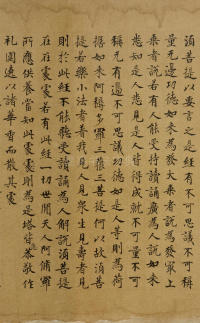 須菩提以要言之是經有不可思議不可稱
量无邊功德如来為發大乘者說為發最上
乘者說若有人能受持讀誦廣為人說如来
悉知是人悉見是人皆得成就不可量不可
稱无有邊不可思議功德如是人等則為荷
擔如来阿耨多羅三藐三菩提何以故須菩
提若樂小法者著我見人見眾生見壽者見
則於此經不能聽受讀誦為人解說須菩提
在在處處若有此經一切世間天人阿脩羅
所應供養當知此處則為是塔皆應恭敬作
礼圍遶以諸華香而散其處